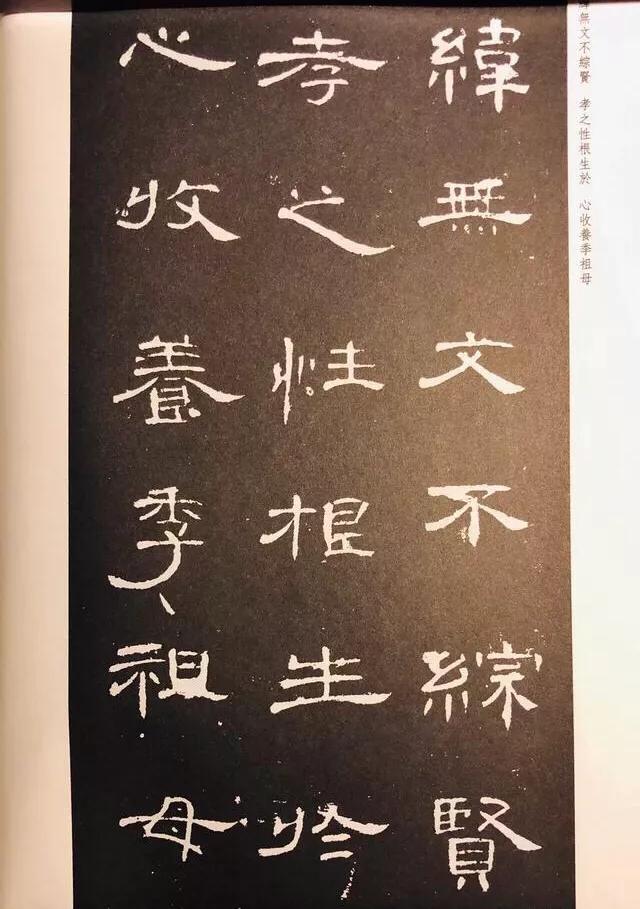 緯無文不綜賢
孝之性根生於
心收養季祖母
緯無文不綜賢 孝之性根生於 心收養季祖母